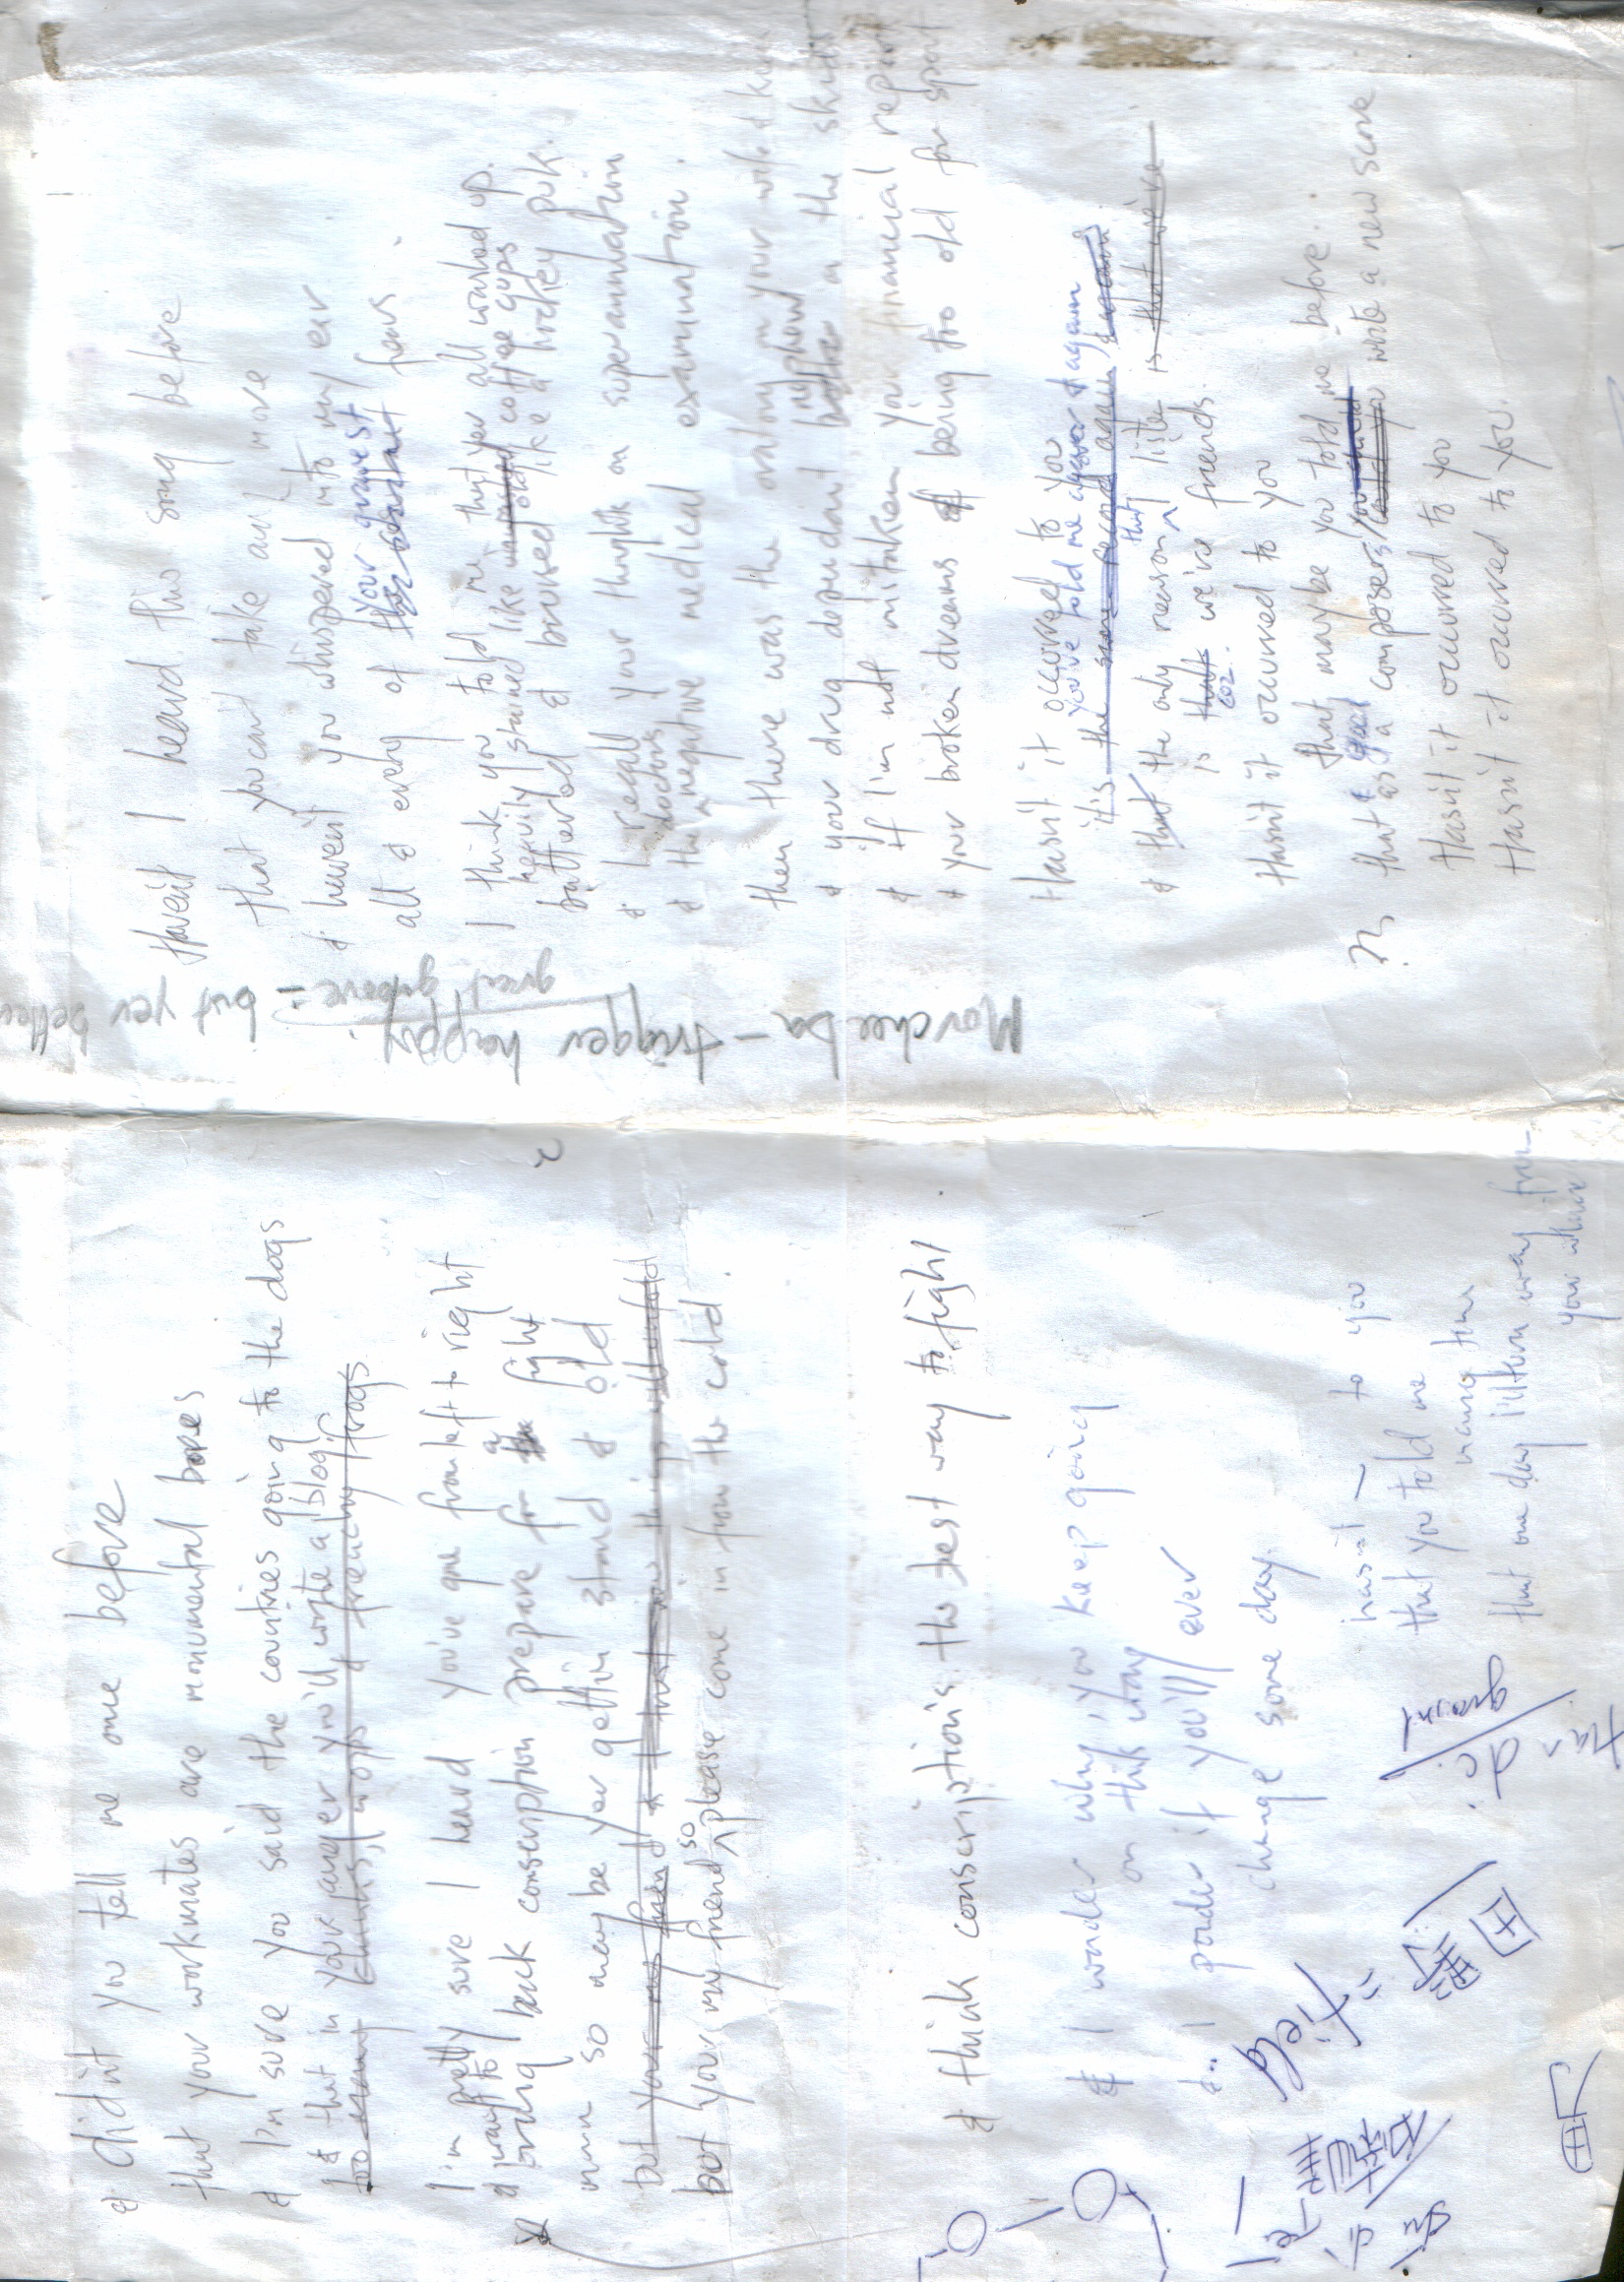 Haven't I heard this song before
that you can't take any more
& haven't you whispered into my ear
all & every of your gravest fears
I think you told me that your all washed up.
heavily stained like coffee cups
battered & bruised like a hockey puk.
& I recall your thoughts on superannuation
& the doctors negative medical examination.
then there was the oratory on your wife & kids
& your drug dependant nephew on the skids
& if I'm not mistaken your financial report
& your broken dreams of being too old for sport
Hasn't it occurred to you
you've told me over & again
it's the same record again
& that the only reason that I listen is that we're
is thats coz we're friends.
Hasn't it occurred to you
that maybe you told me before.
& that as a good composer you could wrote a new score
Hasn't it occurred to you
Hasn't it occurred to you.
Morcheeba - trigger happy
great groove - but yer better
& didn't you tell me once before
that your workmates are monumental bores
& I'm sure you said the countries going to the dogs
& that in your anger you'll write a blog.
too many chinks, wops & frenchy frogs
I'm pretty sure I heard you've gone from left to right
& want to bring back conscription prepare for a fight
mmm so maybe yer gettin staid & old
but your my friend & that
but your my friend so please come in from the cold.
& think conscription's the best way to fight.
& I wonder why, you keep going
on this way
&.. I ponder if you'll ever
change some day.
hasn't — to you
that you told me
many times
that one day i'll turn away from
your
Field =
田
野
男